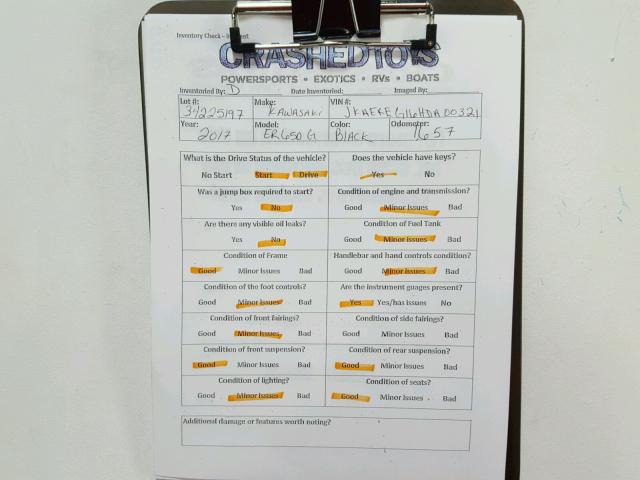 Inventory Check –
CRASHEDTOYS
POWERSPORTS • EXOTICS • RVs • BOATS
Inventoried By: D Date Inventoried: Imaged By:
Lot #: Make: VIN #:
34225197 KAWASAKI JKAEREG16HDA00321
Year: Model: Color: Odometer:
2017 ER650G BLACK 1657
What is the Drive Status of the vehicle? Does the vehicle have keys?
No Start Start Drive Yes No
Was a jump box required to start? Condition of engine and transmission?
Yes No Good Minor Issues Bad
Are there any visible oil leaks? Condition of Fuel Tank
Yes No Good Minor Issues Bad
Condition of Frame Handlebar and hand controls condition?
Good Minor Issues Bad Good Minor Issues Bad
Condition of the foot controls? Are the instrument guages present?
Good Minor Issues Bad Yes Yes/has issues No
Condition of front fairings? Condition of side fairings?
Good Minor Issues Bad Good Minor Issues Bad
Condition of front suspension? Condition of rear suspension?
Good Minor Issues Bad Good Minor Issues Bad
Condition of lighting? Condition of seats?
Good Minor Issues Bad Good Minor Issues Bad
Additional damage or features worth noting?